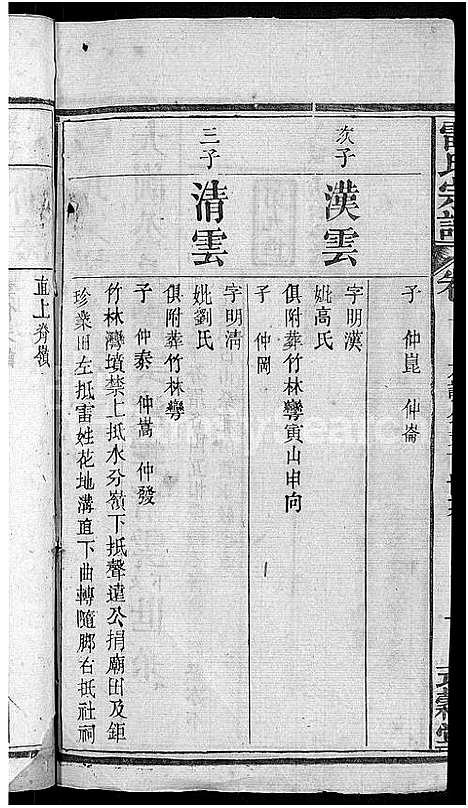 雷氏宗譜
子 仲崑 仲崙
次子
漢雲
字明漢
妣高氏
俱附葬竹林灣寅山申向
子 仲岡
三子
清雲
字明清
妣劉氏
俱附葬竹林灣
子 仲泰 仲嵩 仲發
竹林灣墳禁上抵水分嶺下抵聲達公捐廟田及鉅
珍桑田左抵雷姓花地溝直下曲轉隨脚右抵社祠
直上脊嶺